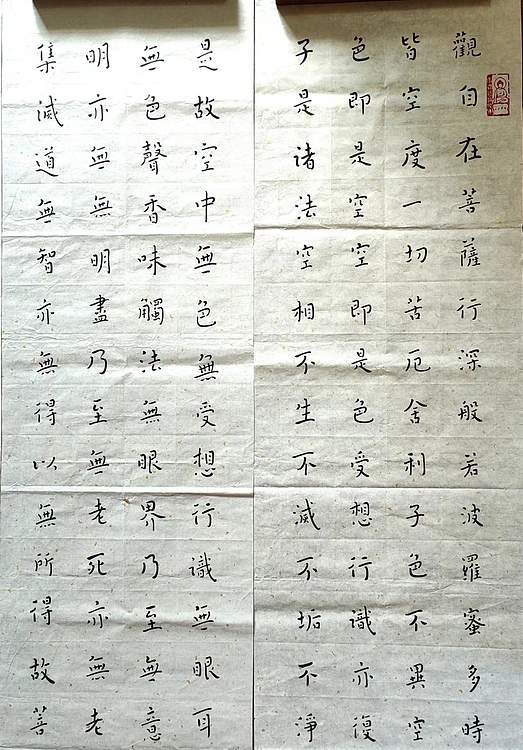 觀自在菩薩行深般若波羅蜜多時
皆空度一切苦厄舍利子色不異空
色即是空空即是色受想行識亦復
子是諸法空相不生不滅不垢不淨
是故空中無色無受想行識無眼耳
無色聲香味觸法無眼界乃至無意
明亦無無明盡乃至無老死亦無老
集滅道無智亦無得以無所得故菩